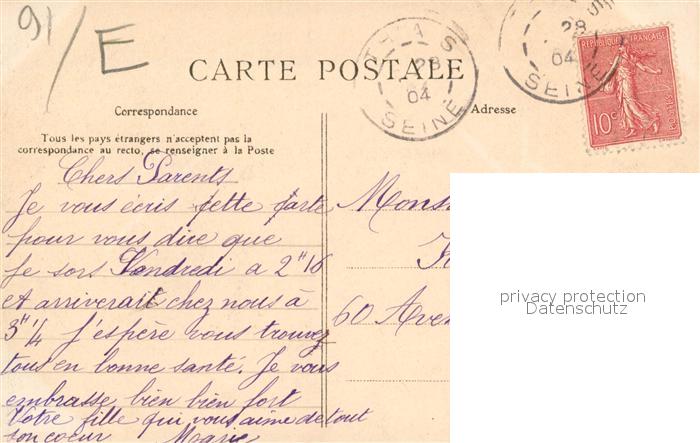 91/E
CARTE POSTALE
THIAS
28
04
SEINE
28
04
SEINE
REPUBLIQUE FRANÇAISE
10c
POSTES
Correspondance
Adresse
Tous les pays étrangers n'acceptent pas la
correspondance au recto, se renseigner à la Poste
Chers Parents
Je vous écris cette carte
pour vous dire que
Je sors Vendredi a 2"16
et arriverait chez nous à
3"¼ J'espère vous trouvez
tous en bonne santé. Je vous
embrasse bien bien fort
Votre fille qui vous aime de tout
son coeur Marie
Mons
60 Aven
privacy protection
Datenschutz